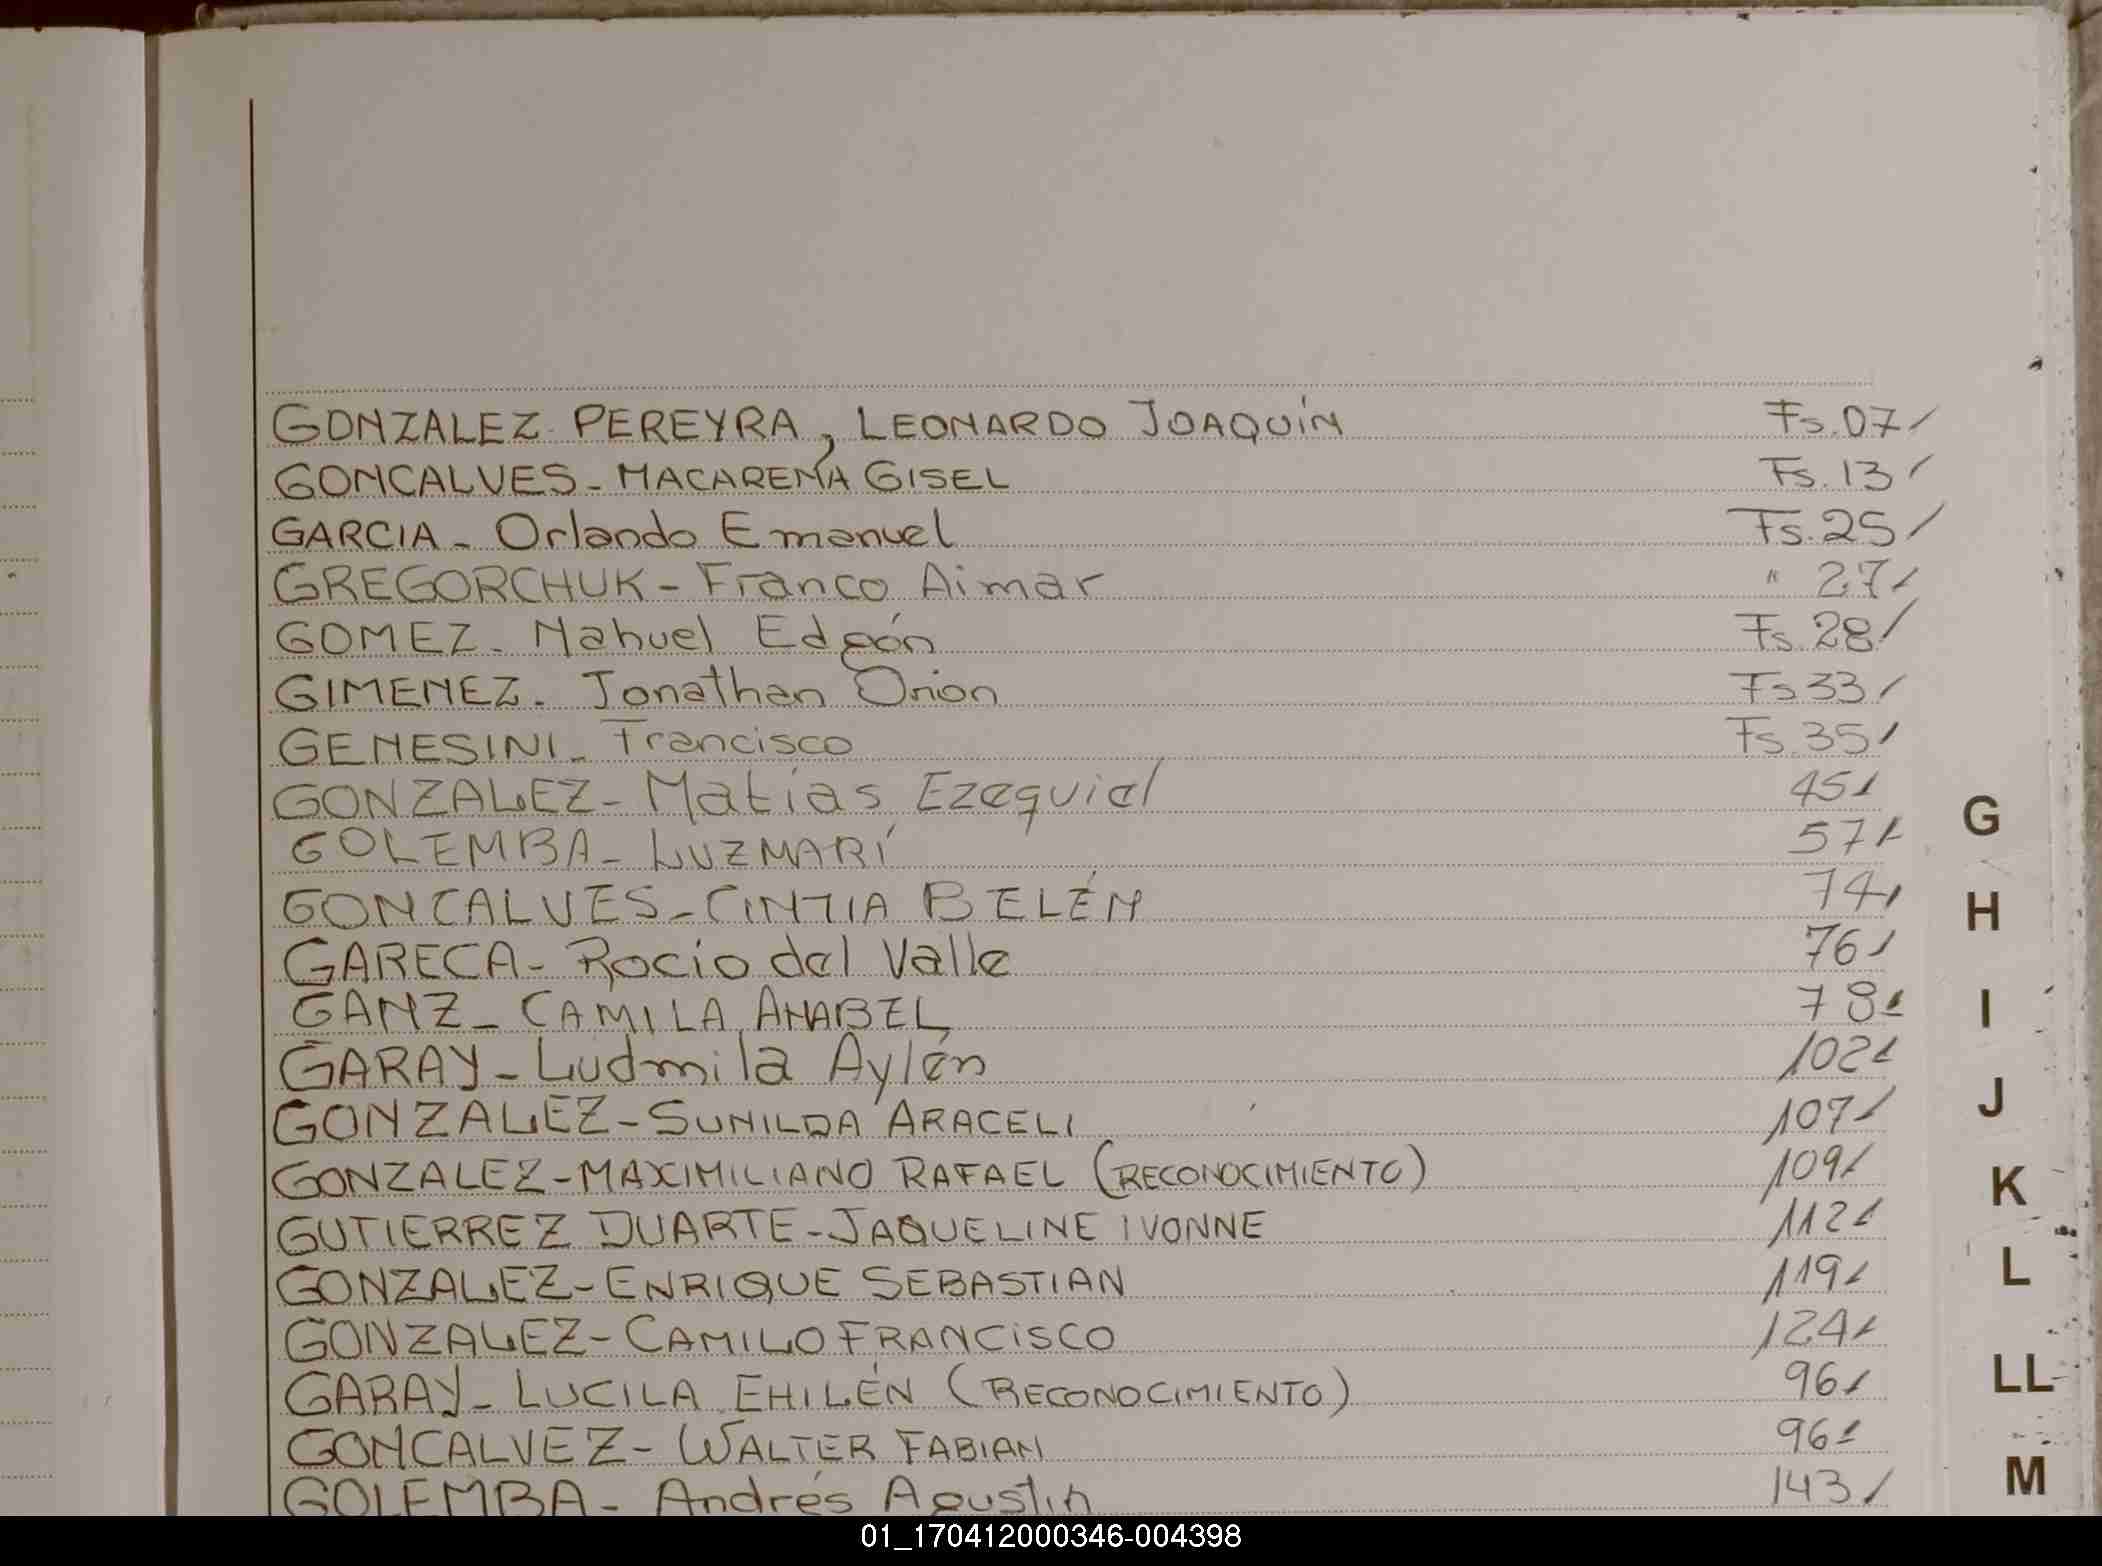 GONZALEZ PEREYRA, LEONARDO JOAQUÍN Fs.07/
GONCALVES- MACARENA GISEL Fs.13/
GARCIA- Orlando Emanuel Fs.25/
GREGORCHUK- Franco Aimar " 27/
GOMEZ- Nahuel Edgón Fs.28/
GIMENEZ- Jonathan Orion Fs33/
GENESINI- Francisco Fs.35/
GONZALEZ- Matías Ezequiel 45/
GOLEMBA- LUZMARÍ 57/
GONCALVES- CINTIA BELÉN 74/
GARECA- Rocio del Valle 76/
GANZ- CAMILA ANABEL 78/
GARAY- Ludmila Aylén 102/
GONZALEZ- SUNILDA ARACELI 107/
GONZALEZ- MAXIMILIANO RAFAEL (RECONOCIMIENTO) 109/
GUTIERREZ DUARTE- JAQUELINE IVONNE 112/
GONZALEZ- ENRIQUE SEBASTIAN 119/
GONZALEZ- CAMILO FRANCISCO 124/
GARAY- LUCILA EHILÉN (RECONOCIMIENTO) 96/
GONCALVEZ- WALTER FABIAN 96/
GOLEMBA- Andrés Agustin 143/
G
H
I
J
K
L
LL
M
01_170412000346-004398